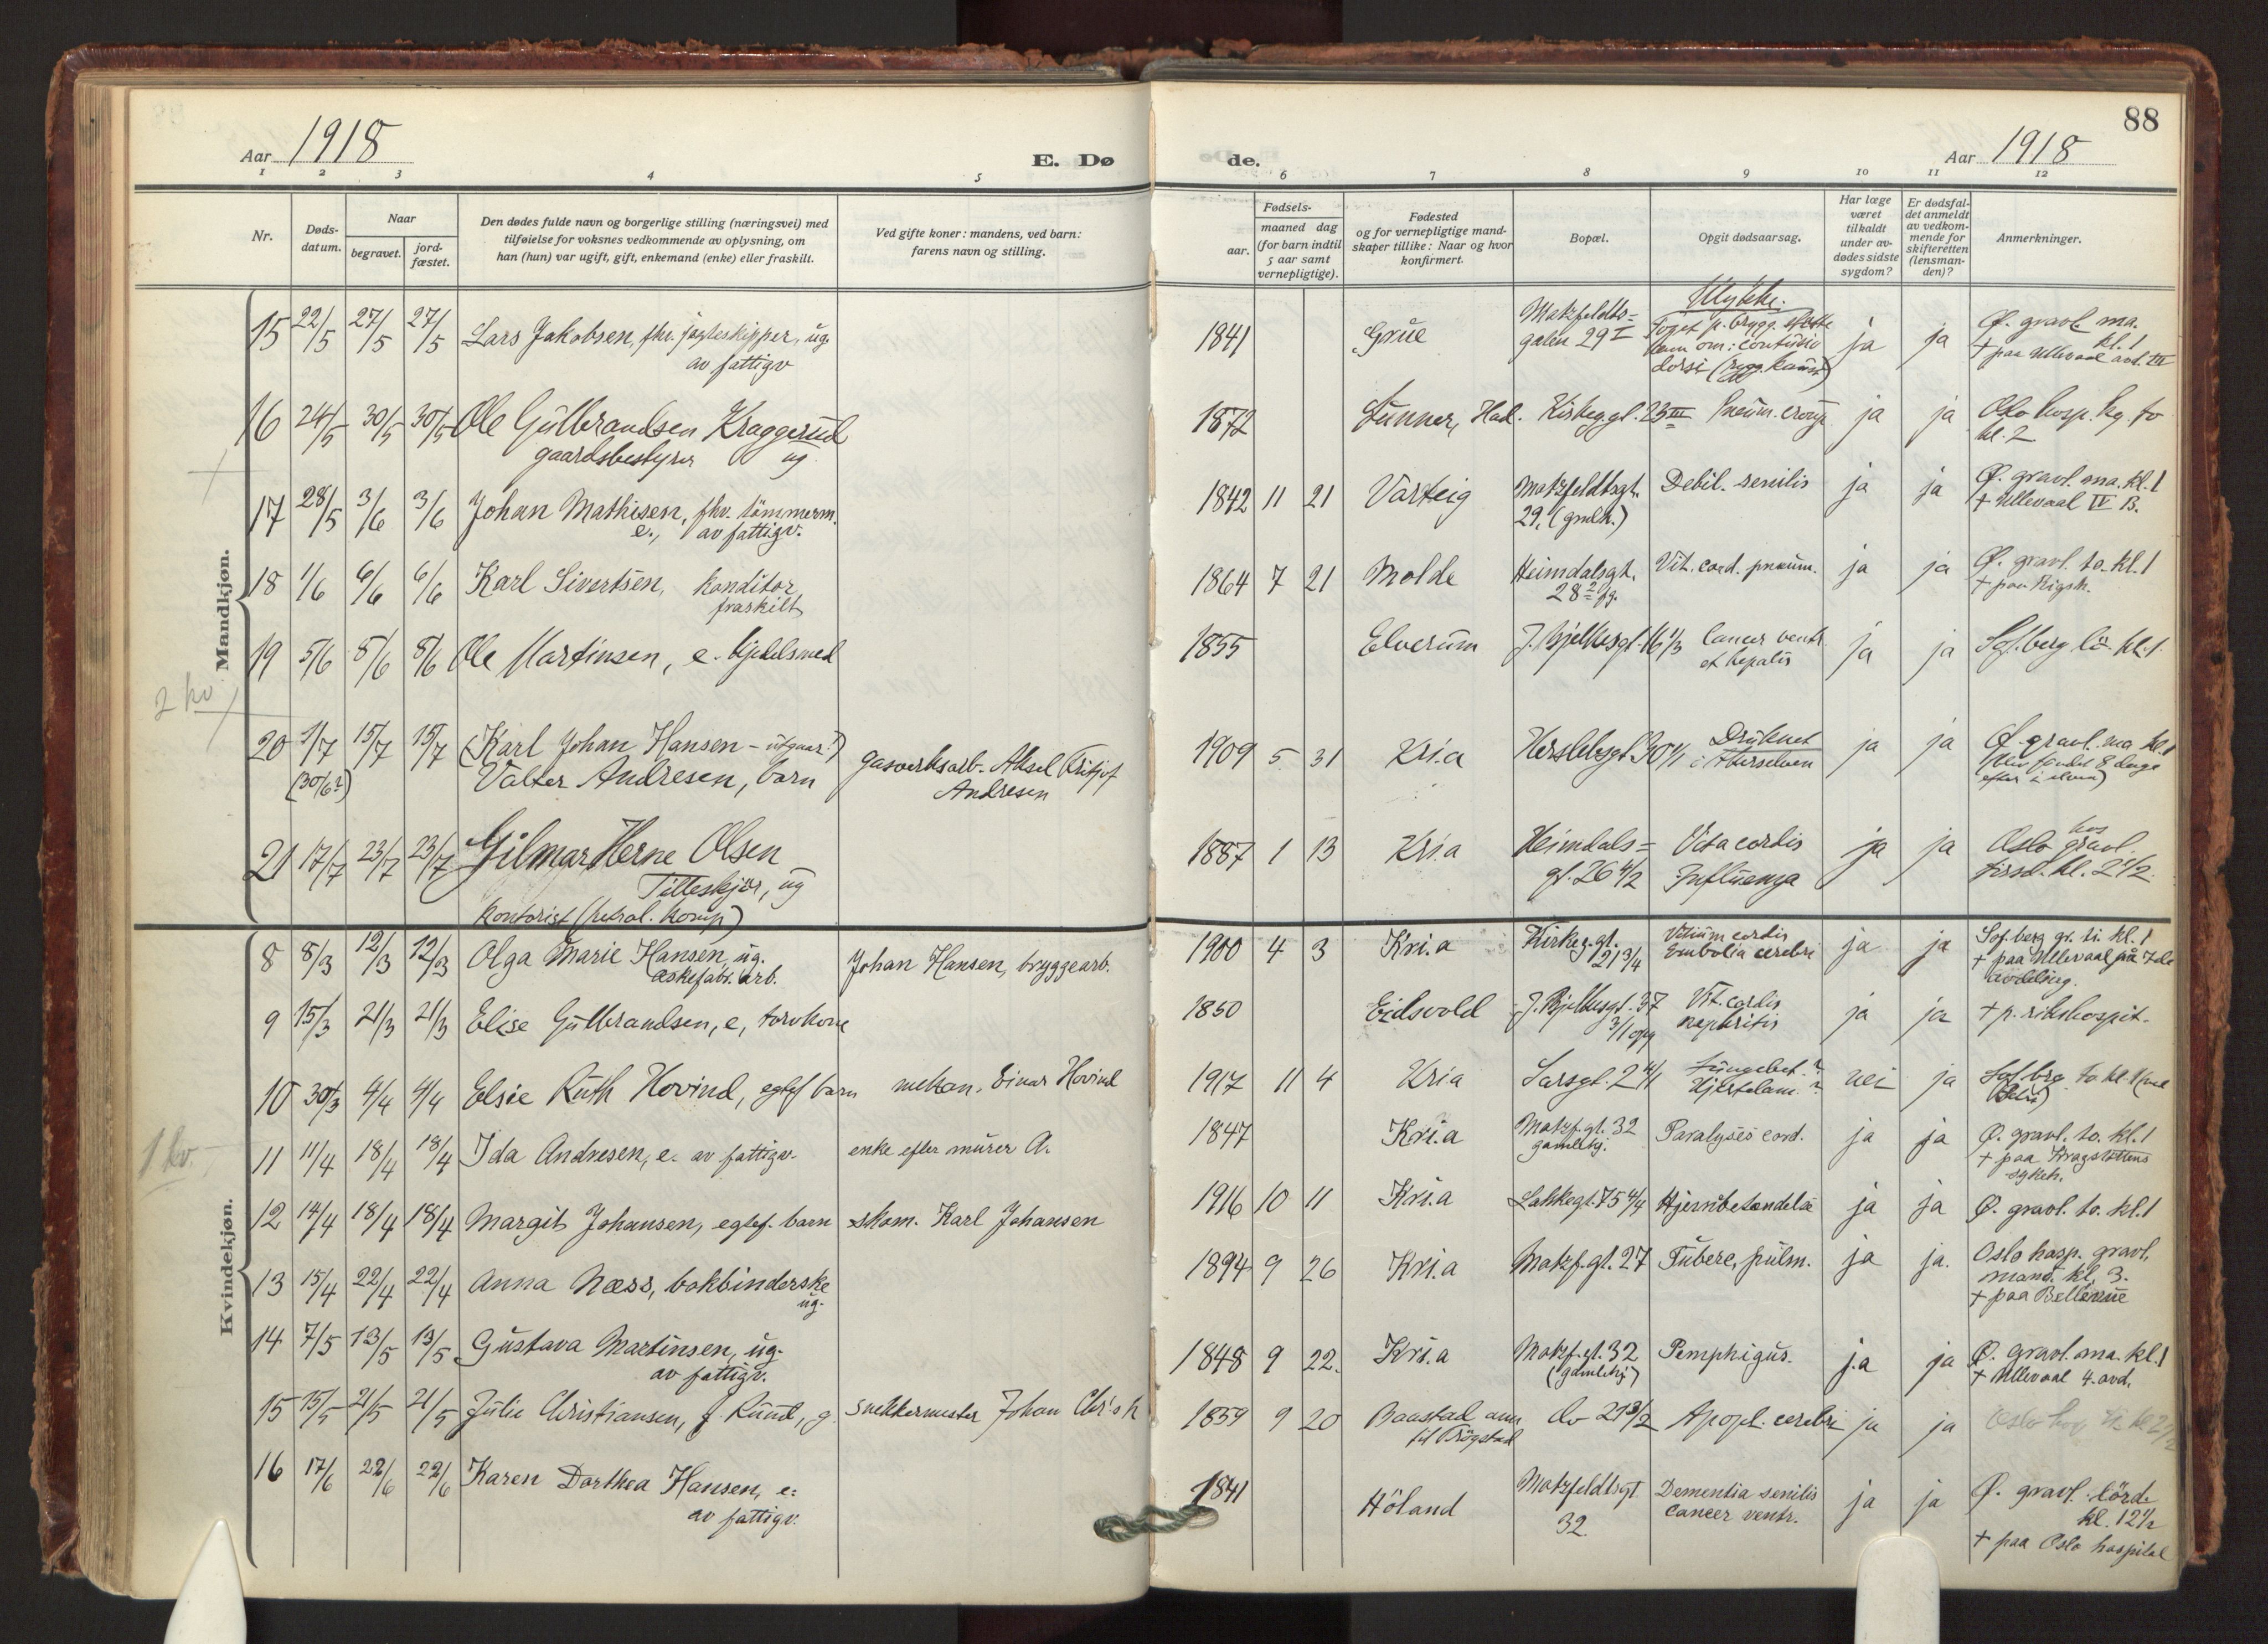 88
Aar 1918
E. Dø
de.
Aar 1918
1 2 3 4 5 6 7 8 9 10 11 12
Nr.
Døds-
datum.
Naar
begravet.
jord-
fæstet.
Den dødes fulde navn og borgerlige stilling (næringsvei) med
tilføielse for voksnes vedkommende av oplysning, om
han (hun) var ugift, gift, enkemand (enke) eller fraskilt.
Ved gifte koner: mandens, ved barn:
farens navn og stilling.
Fødsels-
aar.
maaned dag
(for barn indtil
5 aar samt
vernepligtige).
Fødested
og for vernepligtige mand-
skaper tillike: Naar og hvor
konfirmert.
Bopæl.
Opgit dødsaarsag.
Har læge
været
tilkaldt
under av-
dødes sidste
sygdom?
Er dødsfal-
det anmeldt
av vedkom-
mende for
skifteretten
(lensman-
den)?
Anmerkninger.
Mandkjøn.
15 22/5 27/5 27/5 Lars Jakobsen, fhv. jagteskipper, ug.
av fattigv
1841 Grue
Matzfeldts=
gaten 29 I
Ulykke.
dorsi
ja ja
Ø. gravl. ma.
kl. 1
+ paa Ullevaal avd. III
16 24/5 30/5 30/5 Ole Gulbrandsen Kraggerud
gaardsbestyrer ug
1872 Lunner, Had. Kirkeg.gt. 23 III Pneum. croup. ja ja
Oslo hosp. kg. to
kl. 2
17 28/5 3/6 3/6 Johan Mathisen, fhv. tömmerm.
e., av fattigv.
1842 11 21 Varteig
Matzfeldtsgt.
29, (gmlh.)
Debil. senilis ja ja
Ø. gravl. ma. kl. 1
+ Ullevaal IV B.
18 1/6 6/6 6/6 Karl Sivertsen, konditor
fraskilt
1864 7 21 Molde
Heimdalsgt.
28
Vit. cord. pneum. ja ja
Ø. gravl. to. kl. 1
+ paa Rigsh.
19 5/6 8/6 8/6 Ole Martinsen, e. kjedelsmed
1855 Elverum J. Bjelkesgt. 16 1/3
Cancer ventr.
et hepatis
ja ja Sof.berg lö. kl. 1
2 kv
20 1/7 15/7 15/7 (Karl Johan Hansen - utgaar!)
(30/6?) Valter Andresen, barn
gasverksarb. Aksel Fritjof
Andresen
1909 5 31 Kri.a Herslebsgt. 30 1/1
Druknet
i Akerselven
ja ja
Ø. gravl. ma kl. 1
(blev fundet 8 dage
efter i elven)
21 17/7 23/7 23/7 Hilmar Herne Olsen
Titteskjör, ug
kontorist
1887 1 13 Kri.a
Heimdals=
gt. 26 4/2
Vita cordis
Influenza
ja ja
Oslo hos gravl.
tirsd. kl. 2 1/2.
Kvindekjøn.
8 8/3 12/3 12/3 Olga Marie Hansen, ug.
æskefabr. arb.
Johan Hansen, bryggearb.
1900 4 3 Kri.a
Kirkeg.gt.
21 3/4
Vitium cordis
Embolia cerebri
ja ja
Sof.berg gr. ti. kl. 1
+ paa Ullevaal
avdeling.
9 15/3 21/3 21/3 Elise Gulbrandsen, e, torvkone
1850 Eidsvold
J. Bjelkesgt. 37
3/1 opg
Vit. cordis
nephritis
ja ja + p. rikshospit.
10 30/3 4/4 4/4 Elsie Ruth Hovind, egtef barn mekan. Einar Hovind
1917 11 4 Kria Sarsgt. 2 4/1
Lungebet. ?
Hjertelam. ?
nei ja
1 kv.
11 11/4 18/4 18/4 Ida Andresen, e. av fattigv. enke efter murer A.
1847 Kri.a
Matzf.gt. 32
gamlehj.
Paralyses cord. ja ja
Ø. gravl. to. kl. 1
+ paa Kragstöttens
sykeh.
12 14/4 18/4 18/4 Margit Johansen, egtef. barn skom. Karl Johansen
1916 10 11 Kri.a Lakkegt. 75 4/4 Hjernebetændelse ja ja Ø. gravl. to. kl. 1
13 15/4 22/4 22/4 Anna Næss, bokbinderske
ug.
1894 9 26 Kri.a Matzf.gt. 27 Tuberc. pulm. ja ja.
Oslo hosp. gravl.
mand. kl. 3.
+ paa Bellevue
14 7/5 13/5 13/5 Gustava Martinsen, ug.
av fattigv.
1848 9 22. Kri.a
Matzf.gt. 32
(gamlehj)
Pemphigus. ja ja
Ø. gravl. ma. kl. 1
+ Ullevaal 4. avd.
15 15/5 21/5 21/5 Julie Christiansen, f. Ruud, g. snekkermester Johan Chr.s h
1859 9 20 Baastad ann
til Trögstad
do 29 3/2 Apopl. cerebri ja ja Oslo hos ti kl 2 1/2
16 17/6 22/6 22/6 Karen Dorthea Hansen, e.
av fattigv.
1841 Höland
Matzfeldtsgt
32.
Dementia senilis
Cancer ventr.
ja ja
Ø. gravl. lörd.
kl. 12 1/2
+ paa Oslo hospital